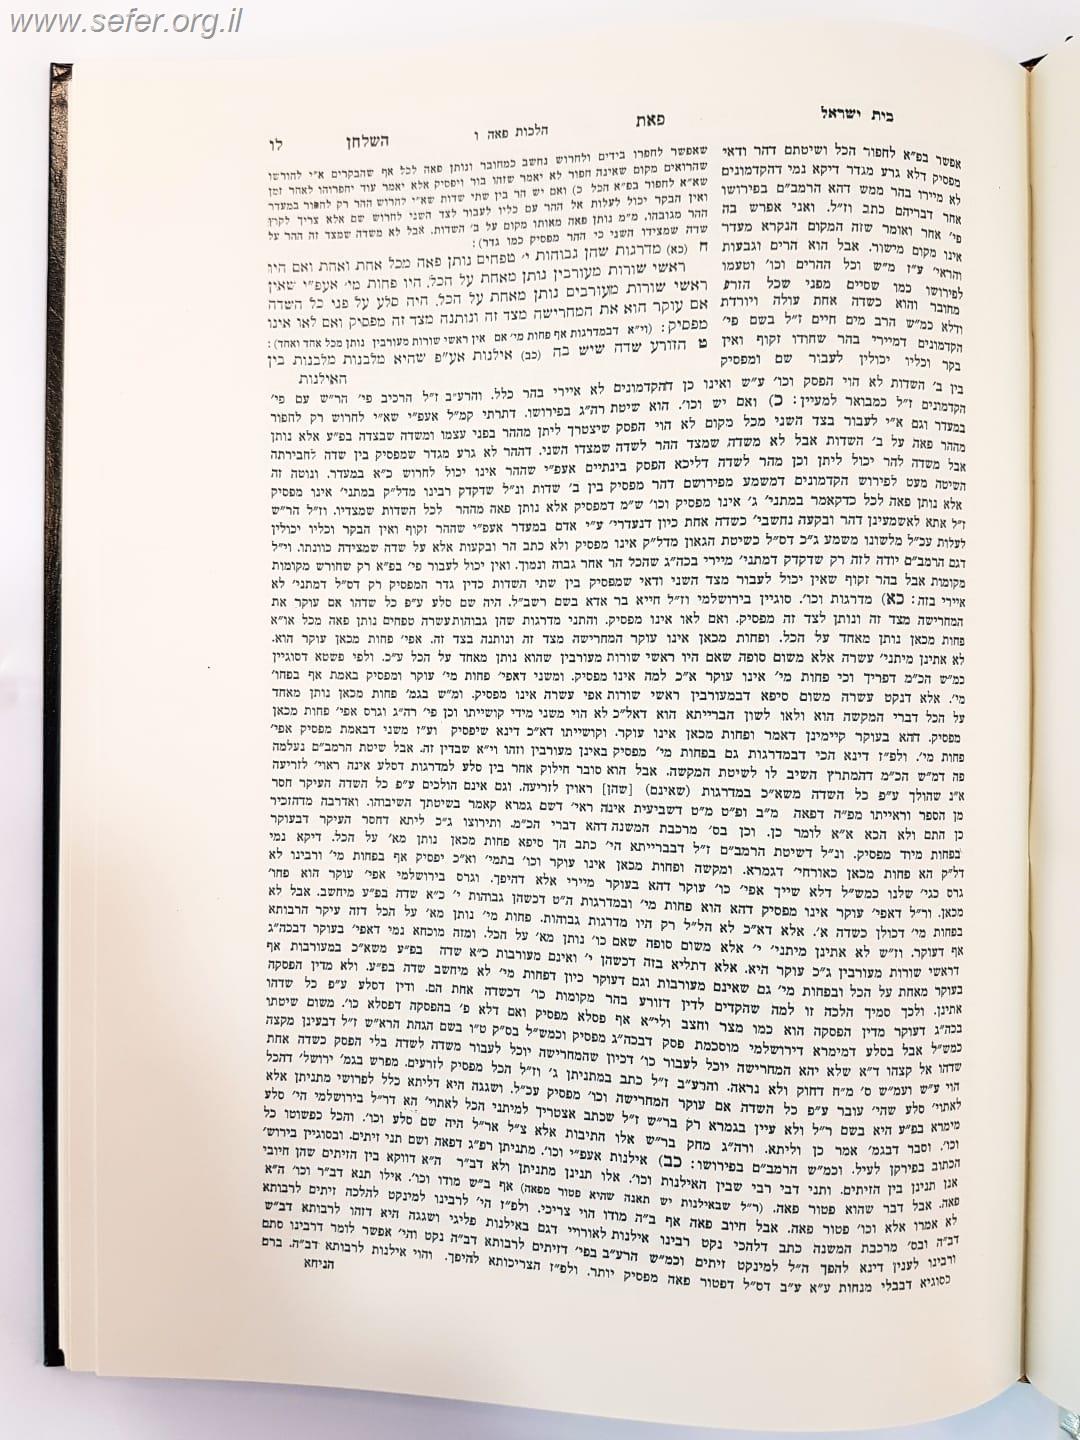 www.sefer.org.il
בית ישראל פאת הלכות פאה ו השלחן לו
שאפשר לחפרו בידים ולחרוש נחשב כמחובר ונותן פאה לכל אף שהבקרים א"י להורשו
שהרואים מקום שאינה חפור לא יאמר שזהו בור ויפסיק אלא יאמר עוד יחפרוהו לאחר זמן
שא"א לחפור בפ"א הכל כ) ואם יש הר בין שתי שדות שא"י לחרוש ההר רק לחפור במעדר
ואין הבקר יכול לעלות אל ההר עם כליו לעבור לצד השני לחרוש שם אלא צריך לקרן
ההר מגובהו. מ"מ נותן פאה מאותו מקום על ב' השדות. אבל לא משדה שמצד זה ההר על
שדה שמצידו השני כי ההר מפסיק כמו גדר):
ח (כא) מדרגות שהן גבוהות י' טפחים נותן פאה מכל אחת ואחת ואם היו
ראשי שורות מעורבין נותן מאחת על הכל, היו פחות מי' אעפ"י שאין
ראשי שורות מעורבים נותן מאחת על הכל, היה סלע על פני כל השדה
אם עוקר הוא את המחרישה מצד זה ונותנה מצד זה מפסיק ואם לאו אינו
מפסיק: (וי"א דבמדרגות אף פחות מי' אם אין ראשי שורות מעורבין נותן מכל אחד ואחד):
ט הזורע שדה שיש בה (כב) אילנות אע"פ שהיא מלבנות מלבנות בין
האילנות
אפשר בפ"א לחפור הכל ושיטתם דהר ודאי
מפסיק דלא גרע מגדר דיקא נמי דהקדמונים
לא מיירו בהר ממש דהא הרמב"ם בפירושו
אחר דבריהם כתב וז"ל. ואני אפרש בה
פי' אחר ואומר שזה המקום הנקרא מעדר
אינו מקום מישור. אבל הוא הרים וגבעות
והראי' ע"ז מ"ש וכל ההרים וכו' וטעמו
לפירושו כמו שסיים מפני שכל הזרע
מחובר והוא כשדה אחת עולה ויורדת
ודלא כמ"ש הרב מים חיים ז"ל בשם פי'
הקדמונים דמיירי בהר שחודו זקוף ואין
בקר וכליו יכולין לעבור שם ומפסיק
בין ב' השדות לא הוי הפסק וכו' ע"ש ואינו כן דהקדמונים לא איירי בהר כלל. והרע"ב ז"ל הרכיב פי' הר"ש עם פי'
הקדמונים ז"ל כמבואר למעיין: כ) ואם יש וכו'. הוא שיטת רה"ג בפירושו. דתרתי קמ"ל אעפ"י שא"י לחרוש רק לחפור
במעדר וגם א"י לעבור בצד השני מכל מקום לא הוי הפסק שיצטרך ליתן מההר בפני עצמו ומשדה שבצדה בפ"ע אלא נותן
מההר פאה על ב' השדות אבל לא משדה שמצד ההר לשדה שמצדו השני. דההר לא גרע מגדר שמפסיק בין שדה לחבירתה
אבל משדה להר יכול ליתן וכן מהר לשדה דליכא הפסק בינתיים אעפ"י שההר אינו יכול לחרוש כ"א במעדר. ונוטה זה
השיטה מעט לפירוש הקדמונים דמשמע מפירושם דהר מפסיק בין ב' שדות ונ"ל שדקדק רבינו מדל"ק במתני' אינו מפסיק
אלא נותן פאה לכל כדקאמר במתני' ג' אינו מפסיק וכו' ש"מ דמפסיק אלא נותן פאה מההר לכל השדות שמצדיו. וז"ל הר"ש
ז"ל אתא לאשמעינן דהר ובקעה נחשבי' כשדה אחת כיון דנעדרי' ע"י אדם במעדר אעפ"י שההר זקוף ואין הבקר וכליו יכולין
לעלות עכ"ל מלשונו משמע ג"כ דס"ל כשיטת הגאון מדל"ק אינו מפסיק ולא כתב הר ובקעות אלא על שדה שמצידה כוונתו. וי"ל
דגם הרמב"ם יודה לזה רק שדקדק דמתני' מיירי בכה"ג שהכל הר אחר גבוה ונמוך. ואין יכול לעבור פי' בפ"א רק שחורש מקומות
מקומות אבל בהר זקוף שאין יכול לעבור מצד השני ודאי שמפסיק בין שתי השדות כדין גדר המפסיק רק דס"ל דמתני' לא
איירי בזה: כא) מדרגות וכו'. סוגיין בירושלמי וז"ל חייא בר אדא בשם רשב"ל. היה שם סלע ע"פ כל שדהו אם עוקר את
המחרישה מצד זה ונותן לצד זה מפסיק. ואם לאו אינו מפסיק. והתני מדרגות שהן גבוהותעשרה טפחים נותן פאה מכל או"א
פחות מכאן נותן מאחד על הכל. ופחות מכאן אינו עוקר המחרישה מצד זה ונותנה בצד זה. אפי' פחות מכאן עוקר הוא.
לא אתינן מיתני' עשרה אלא משום סופה שאם היו ראשי שורות מעורבין שהוא נותן מאחד על הכל ע"כ. ולפי פשטא דסוגיין
כמ"ש הכ"מ דפריך וכי פחות מי' אינו עוקר א"כ למה אינו מפסיק. ומשני דאפי' פחות מי' עוקר ומפסיק באמת אף בפחו'
מי'. אלא דנקט עשרה משום סיפא דבמעורבין ראשי שורות אפי עשרה אינו מפסיק. ומ"ש בגמ' פחות מכאן נותן מאחד
על הכל דברי המקשה הוא ולאו לשון הברייתא הוא דאל"כ לא הוי משני מידי קושייתו וכן פי' רה"ג וגרס אפי' פחות מכאן
מפסיק. דהא בעוקר קיימינן דאמר ופחות מכאן אינו עוקר. וקושייתו דא"כ דינא שיפסיק וע"ז משני דבאמת מפסיק אפי'
פחות מי'. ולפ"ז דינא הכי דבמדרגות גם בפחות מי' מפסיק באינן מעורבין וזהו וי"א שבדין זה. אבל שיטת הרמב"ם נעלמה
פה דמ"ש הכ"מ דהמתרץ השיב לו לשיטת המקשה. אבל הוא סובר חילוק אחר בין סלע למדרגות דסלע אינה ראוי' לזריעה
א"נ שהולך ע"פ כל השדה משא"כ במדרגות (שאינם) [שהן] ראוין לזריעה. וגם אינם הולכים ע"פ כל השדה העיקר חסר
מן הספר וראייתו מפ"ה דפאה מ"ב ופ"ט מ"ט דשביעית אינה ראי' דשם גמרא קאמר בשיטתך השיבוהו. ואדרבה מדהזכיר
כן התם ולא הכא א"א לומר כן. וכן בס' מרכבת המשנה דהא דברי הכ"מ. ותירוצו ג"כ ליתא דחסר העיקר דבעוקר
בפחות מיוד מפסיק. ונ"ל דשיטת הרמב"ם ז"ל דבברייתא הי' כתב הך סיפא פחות מכאן נותן מא' על הכל. דיקא נמי
דל"ק הא פחות מכאן כאורחי' דגמרא. ומקשה ופחות מכאן אינו עוקר וכו' בתמי' וא"כ יפסיק אף בפחות מי' ורבינו לא
גרס כגי' שלנו כמש"ל דלא שייך אפי' כו' עוקר דהא בעוקר מיירי אלא דהיפך. וגרס בירושלמי אפי' עוקר הוא פחו'
מכאן. ור"ל דאפי' עוקר אינו מפסיק דהא הוא פחות מי' ובמדרגות ה"ט דכשהן גבוהות י' כ"א שדה בפ"ע מיחשב. אבל לא
בפחות מי' דכולן כשדה א'. אלא דא"כ לא הל"ל רק היו מדרגות גבוהות. פחות מי' נותן מא' על הכל דזה עיקר הרבותא
אף דעוקר. וז"ש לא אתינן מיתני' י' אלא משום סופה שאם כו' נותן מא' על הכל. ומזה מוכחא נמי דאפי' בעוקר דבכה"ג
דראשי שורות מעורבין ג"כ עוקר היא. אלא דתליא בזה דכשהן י' ואינם מעורבות כ"א שדה בפ"ע משא"כ במעורבות אף
בעוקר מאחת על הכל ובפחות מי' גם שאינם מעורבות וגם דעוקר כיון דפחות מי' לא מיחשב שדה בפ"ע. ולא מדין הפסקה
אתינן. ולכך סמיך הלכה זו למה שהקדים לדין דזורע בהר מקומות כו' דכשדה אחת הם. ודין דסלע ע"פ כל שדהו
בכה"ג דעוקר מדין הפסקה הוא כמו מצר וחצב ולי"א אף פסלא מפסיק ואם דלא פ' בהפסקה דפסלא כו'. משום שיטתו
כמש"ל אבל בסלע דמימרא דירושלמי מוסכמת פסק דבכה"ג מפסיק וכמש"ל בס"ק ט"ו בשם הגהת הרא"ש ז"ל דבעינן מקצה
שדהו אל קצהו ד"א שלא יהא המחרישה יוכל לעבור כו' דכיון שהמחרישה יוכל לעבור משדה לשדה בלי הפסק כשדה אחת
הוי ע"ש ועמ"ש ס' מ"ח דחוק ולא נראה. והרע"ב ז"ל כתב במתניתן ג' וז"ל הכל מפסיק לזרעים. מפרש בגמ' ירושל' דהכל
לאתוי' סלע שהי' עובר ע"פ כל השדה אם עוקר המחרישה וכו' מפסיק עכ"ל. ושגגה היא דליתא כלל לפרושי מתניתן אלא
מימרא בפ"ע היא בשם ר"ל ולא עיין בגמרא רק בר"ש ז"ל שכתב אצטריך למיתני הכל לאתוי' הא דר"ל בירושלמי הי' סלע
וכו'. וסבר דבגמ' אמר כן וליתא. ורה"ג מחק בר"ש אלו התיבות אלא צ"ל אר"ל היה שם סלע וכו'. והכל כפשוטו כל
הכתוב בפירקן לעיל. וכמ"ש הרמב"ם בפירושו: כב) אילנות אעפ"י וכו'. מתניתן רפ"ג דפאה ושם תני זיתים. ובסוגיין בירוש'
אנן תנינן בין הזיתים. ותני דבי רבי שבין האילנות וכו'. אלו תנינן מתניתן ולא דב"ר ה"א דווקא בין הזיתים שהן חיובי
פאה. אבל דבר שהוא פטור פאה. (ר"ל שבאילנות יש תאנה שהיא פטור מפאה) אף ב"ש מודו וכו'. אילו תנא דב"ר וכו' ה"א
לא אמרו אלא וכו' פטור פאה. אבל חיוב פאה אף ב"ה מודו הוי צריכי. ולפ"ז הי' לרבינו למינקט להלכה זיתים לרבותא
דב"ה ובס' מרכבת המשנה כתב דלהכי נקט רבינו אילנות לאורויי דגם באילנות פליגי ושגגה היא דזהו לרבותא דב"ש
ורבינו לענין דינא להפך ה"ל למינקט זיתים וכמ"ש הרע"ב בפי' דזיתים לרבותא דב"ה נקט והי' אפשר לומר דרבינו סתם
כסוגיא דבבלי מנחות ע"א ע"ב דס"ל דפטור פאה מפסיק יותר. ולפ"ז הצריכותא להיפך. והוי אילנות לרבותא דב"ה. ברם
הניחא